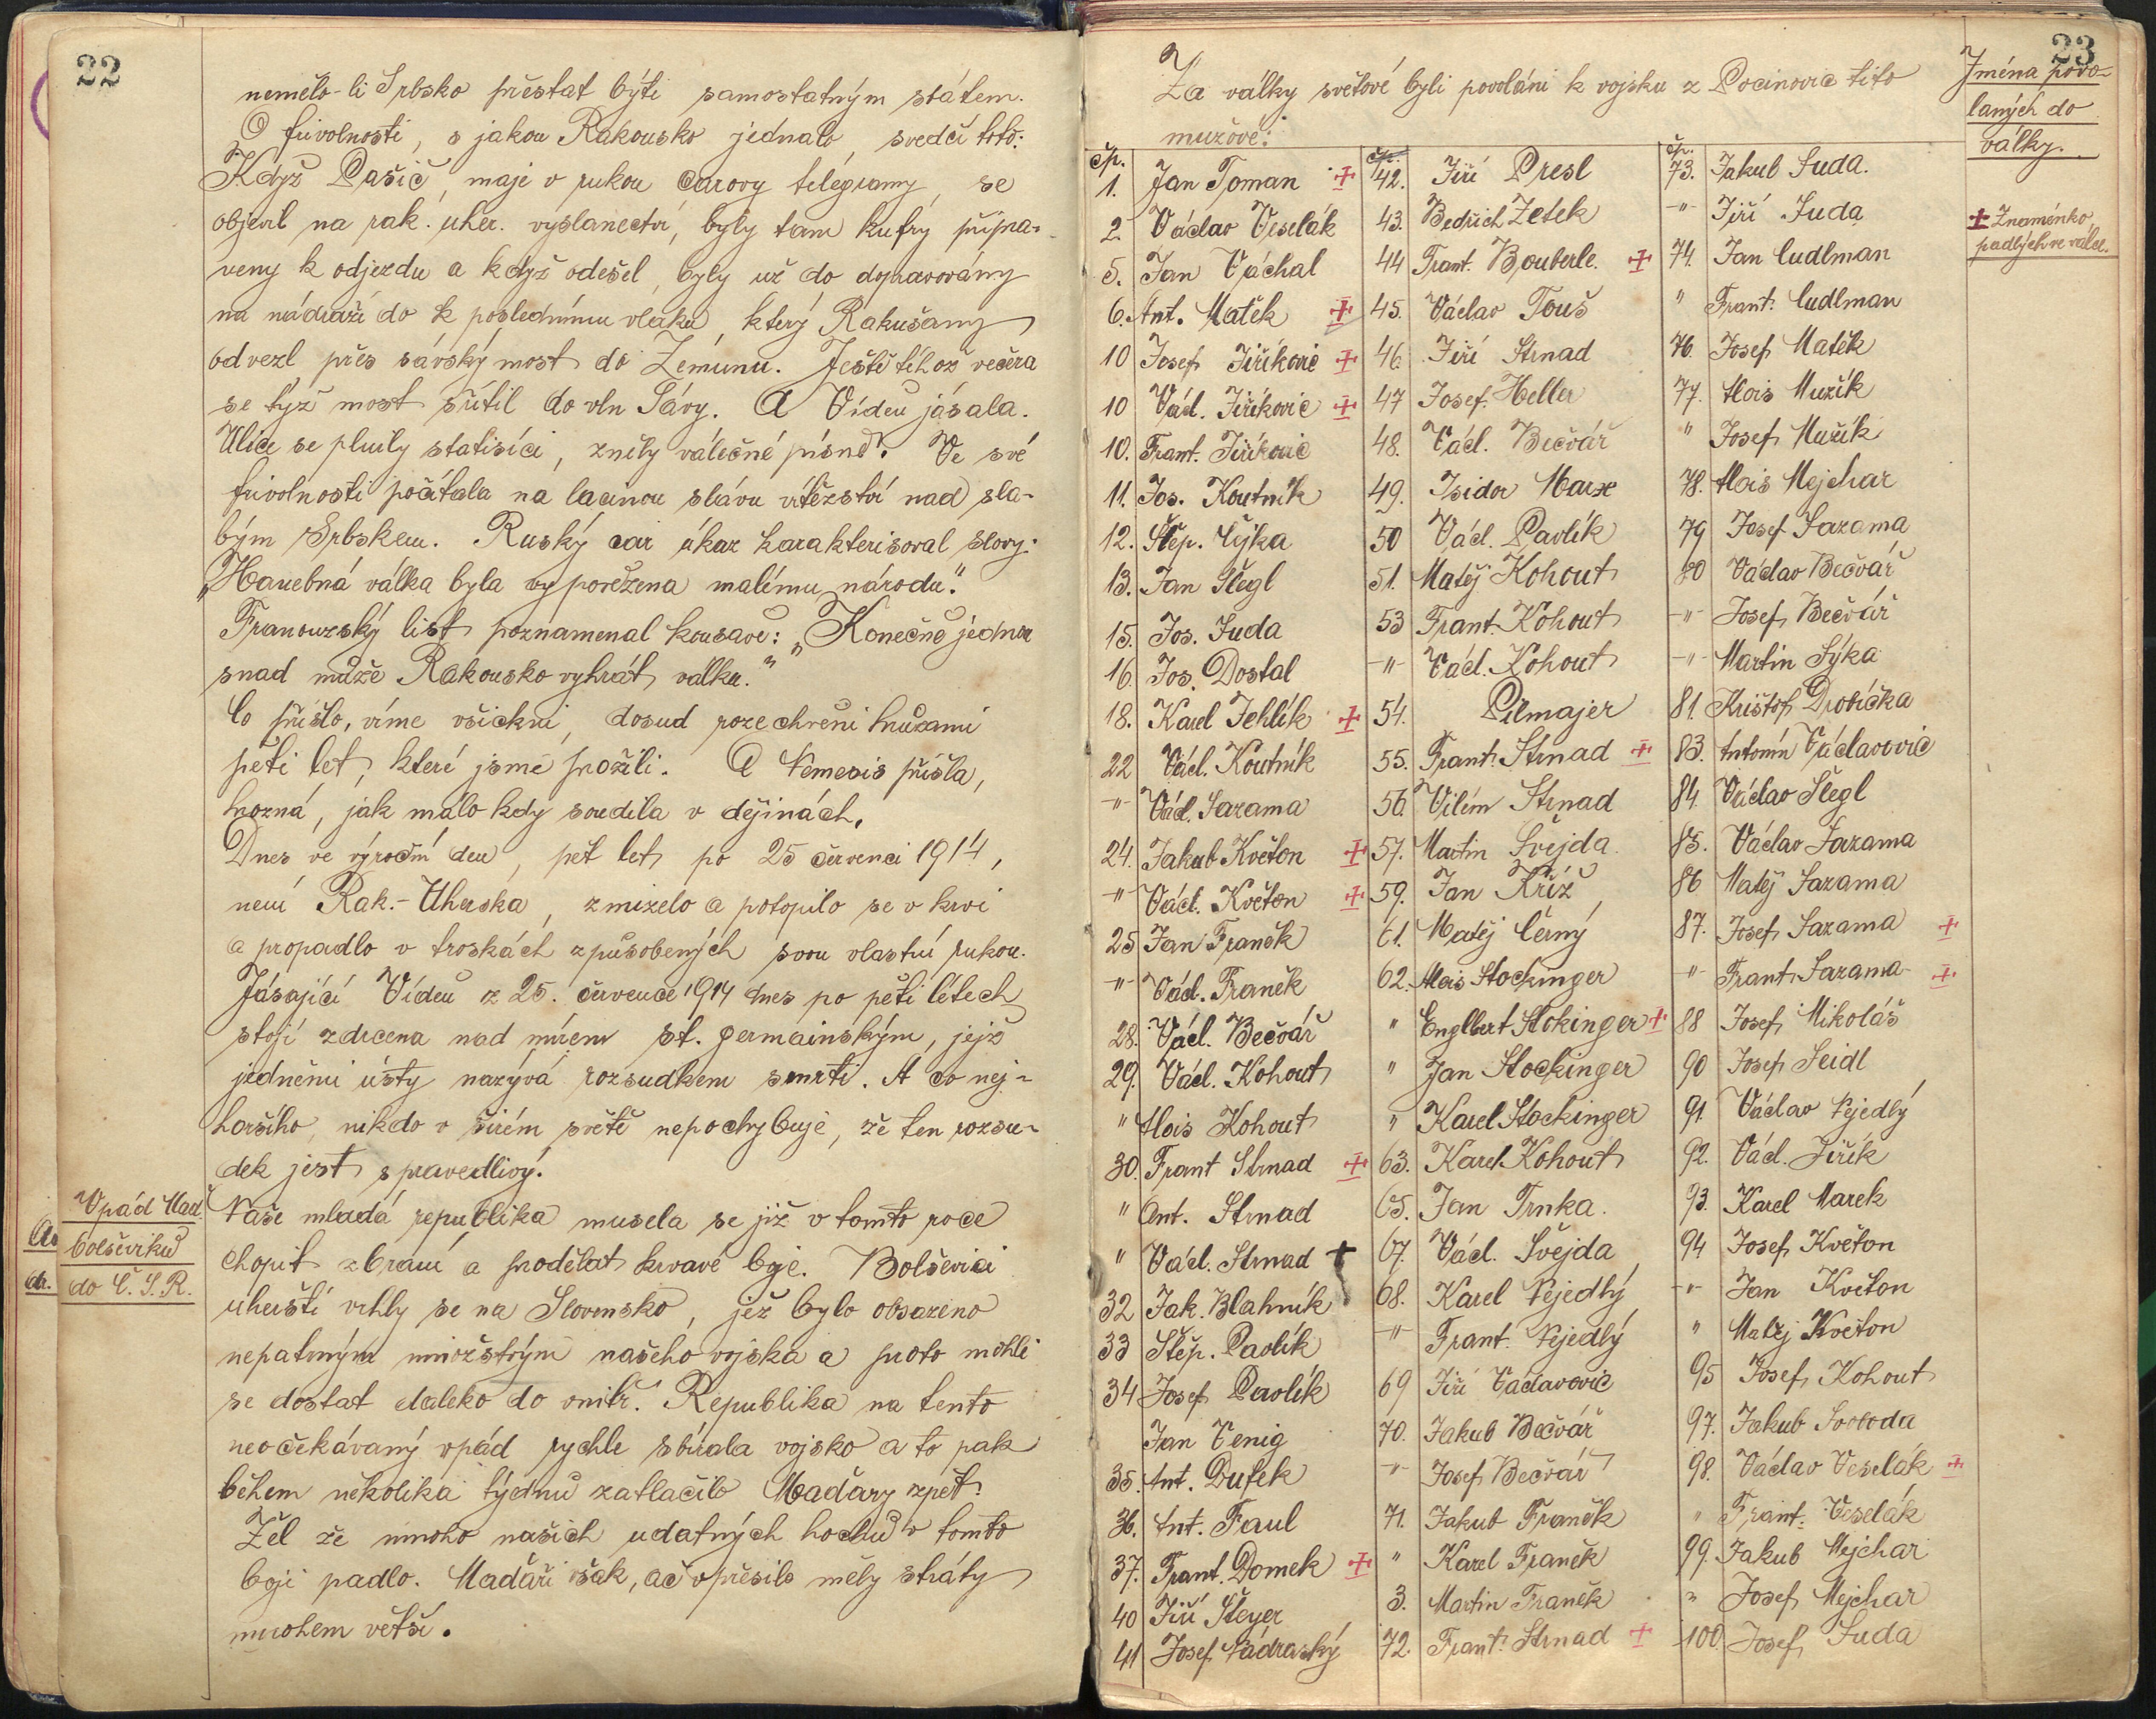 22
nemělo-li Srbsko přestat býti samostatným státem.
O frivolnosti, s jakou Rakousko jednalo, svedčí toto:
Když Pašič, maje v rukou carovy telegramy, se
objevil na rak. uher. vyslanectví, byly tam kufry připra-
veny k odjezdu a když odešel, byly už do dopravovány
na nádraží do k poslednímu vlaku, který Rakušany
odvezl přes sávský most do Zemunu. Ještě téhož večera
se týž most sřítil do vln Sávy. A Vídeň jásala.
Ulice se plnily statisíci, zněly válečné písně. Ve své
frivolnosti počítala na lacinou slávu vítězství nad sla-
bým Srbskem. Ruský car úkaz karakterisoval slovy:
„Hanebná válka byla vypovězena malému národu."
Francouzský list poznamenal kousavě: „Konečně jednou
snad může Rakousko vyhrát válku."
Co přišlo, víme všickni, dosud rozechvěni hrůzami
pěti let, které jsme prožili. A Nemesis přišla,
hrozná, jak málo kdy soudila v dějinách.
Dnes ve výroční den, pět let po 25 červenci 1914,
není Rak.-Uherska, zmizelo a potopilo se v krvi
a propadlo v troskách způsobených svou vlastní rukou.
Jásající Vídeň z 25. července 1914 dnes po pěti létech
stojí zdrcena nad mírem st. germainským, jejž
jedněmi ústy nazývá rozsudkem smrti. A co nej-
horšího, nikdo v širém světě nepochybuje, že ten rozsu-
dek jest spravedlivý.
Vpád Maď.
bolševiků
do Č. S. R.
Naše mladá republika musela se již v tomto roce
chopit zbraní a prodělat krvavé boje. Bolševici
uherští vrhly se na Slovensko, jež bylo obsazeno
nepatrným množstvým našeho vojska a proto mohli
se dostat daleko do vnitř. Republika na tento
neočekávaný vpád rychle sbírala vojsko a to pak
během několika týdnů zatlačilo Maďary zpět.
Žel že mnoho našich udatných hochů v tomto
boji padlo. Maďaři však, ač v přesile měly ztráty
mnohem větší.
23
Jména povo-
laných do
války.
± Znaménko
padlých ve válce.
Za války světové byli povoláni k vojsku z Pocinovic tito
mužové:
čp.
1. Jan Toman ±
2. Václav Veselák
5. Jan Váchal
6. Ant. Matěk ±
10 Josef Jiříkovic ±
10 Václ. Jiříkovic ±
10. Frant. Jiříkovic
11. Jos. Koutník
12. Štěp. Cýka
13. Jan Šlegl
15. Jos. Suda
16. Jos. Dostal
18. Karel Jehlík ±
22 Václ. Koutník
-"- Václ. Sazama
24. Jakub Květon ±
-"- Václ. Květon ±
25 Jan Franěk
-"- Václ. Franěk
28. Václ. Bečvář
29. Václ. Kohout
" Alois Kohout
30. Frant Strnad ±
" Ant. Strnad
" Václ. Strnad +
32 Jak. Blahník
33 Štěp. Pavlík
34 Josef Pavlík
Jan Venig
35. Ant. Dufek
36. Ant. Faul
37. Frant. Domek ±
40 Jiří Steyer
41 Josef Nádraský
čp.
42. Jiří Presl
43. Bedřich Zetek
44 Frant. Bouberle. ±
45. Václav Touš
46. Jiří Strnad
47 Josef. Heller
48. Václ. Bečvář
49. Isidor Marx
50 Václ. Pavlík
51. Matěj Kohout
53 Frant. Kohout
-"- Václ. Kohout
54. Pilmajer
55. Frant. Strnad ±
56. Vilém Strnad
57. Martin Švejda.
59. Jan Kříž
61. Matěj Černý
62. Alois Stockinger
" Englbert Stokinger ±
" Jan Stockinger
" Karel Stockinger
63. Karel Kohout
65. Jan Trnka.
67. Václ. Švejda
68. Karel Nejedlý
-"- Frant. Nejedlý
69 Jiří Václavovic
70. Jakub Bečvář
-"- Josef Bečvář
71. Jakub Franěk
" Karel Franěk
3. Martin Franěk
72. Frant. Strnad ±
čp.
73. Jakub Suda.
-"- Jiří Suda
74. Jan Cudlman
" Frant. Cudlman
76. Josef Matěk
77. Alois Mužík
" Josef Mužík
78. Alois Mejchar
79 Josef Sazama
80 Václav Bečvář
-"- Josef Bečvář
-"- Martin Sýka
81. Krištof Drobička
83. Antonín Václavovic
84. Václav Šlegl
85. Václav Sazama
86 Matěj Sazama
87. Josef Sazama ±
-"- Frant. Sazama ±
88 Josef Mikoláš
90 Josef Seidl
91 Václav Nejedlý
92. Václ. Jiřík
93. Karel Marek
94. Josef Květon
-"- Jan Květon
" Matěj Květon
95 Josef Kohout
97. Jakub Svoboda
98. Václav Veselák ±
" Frant. Veselák
99. Jakub Mejchar
" Josef Mejchar
100. Josef Suda